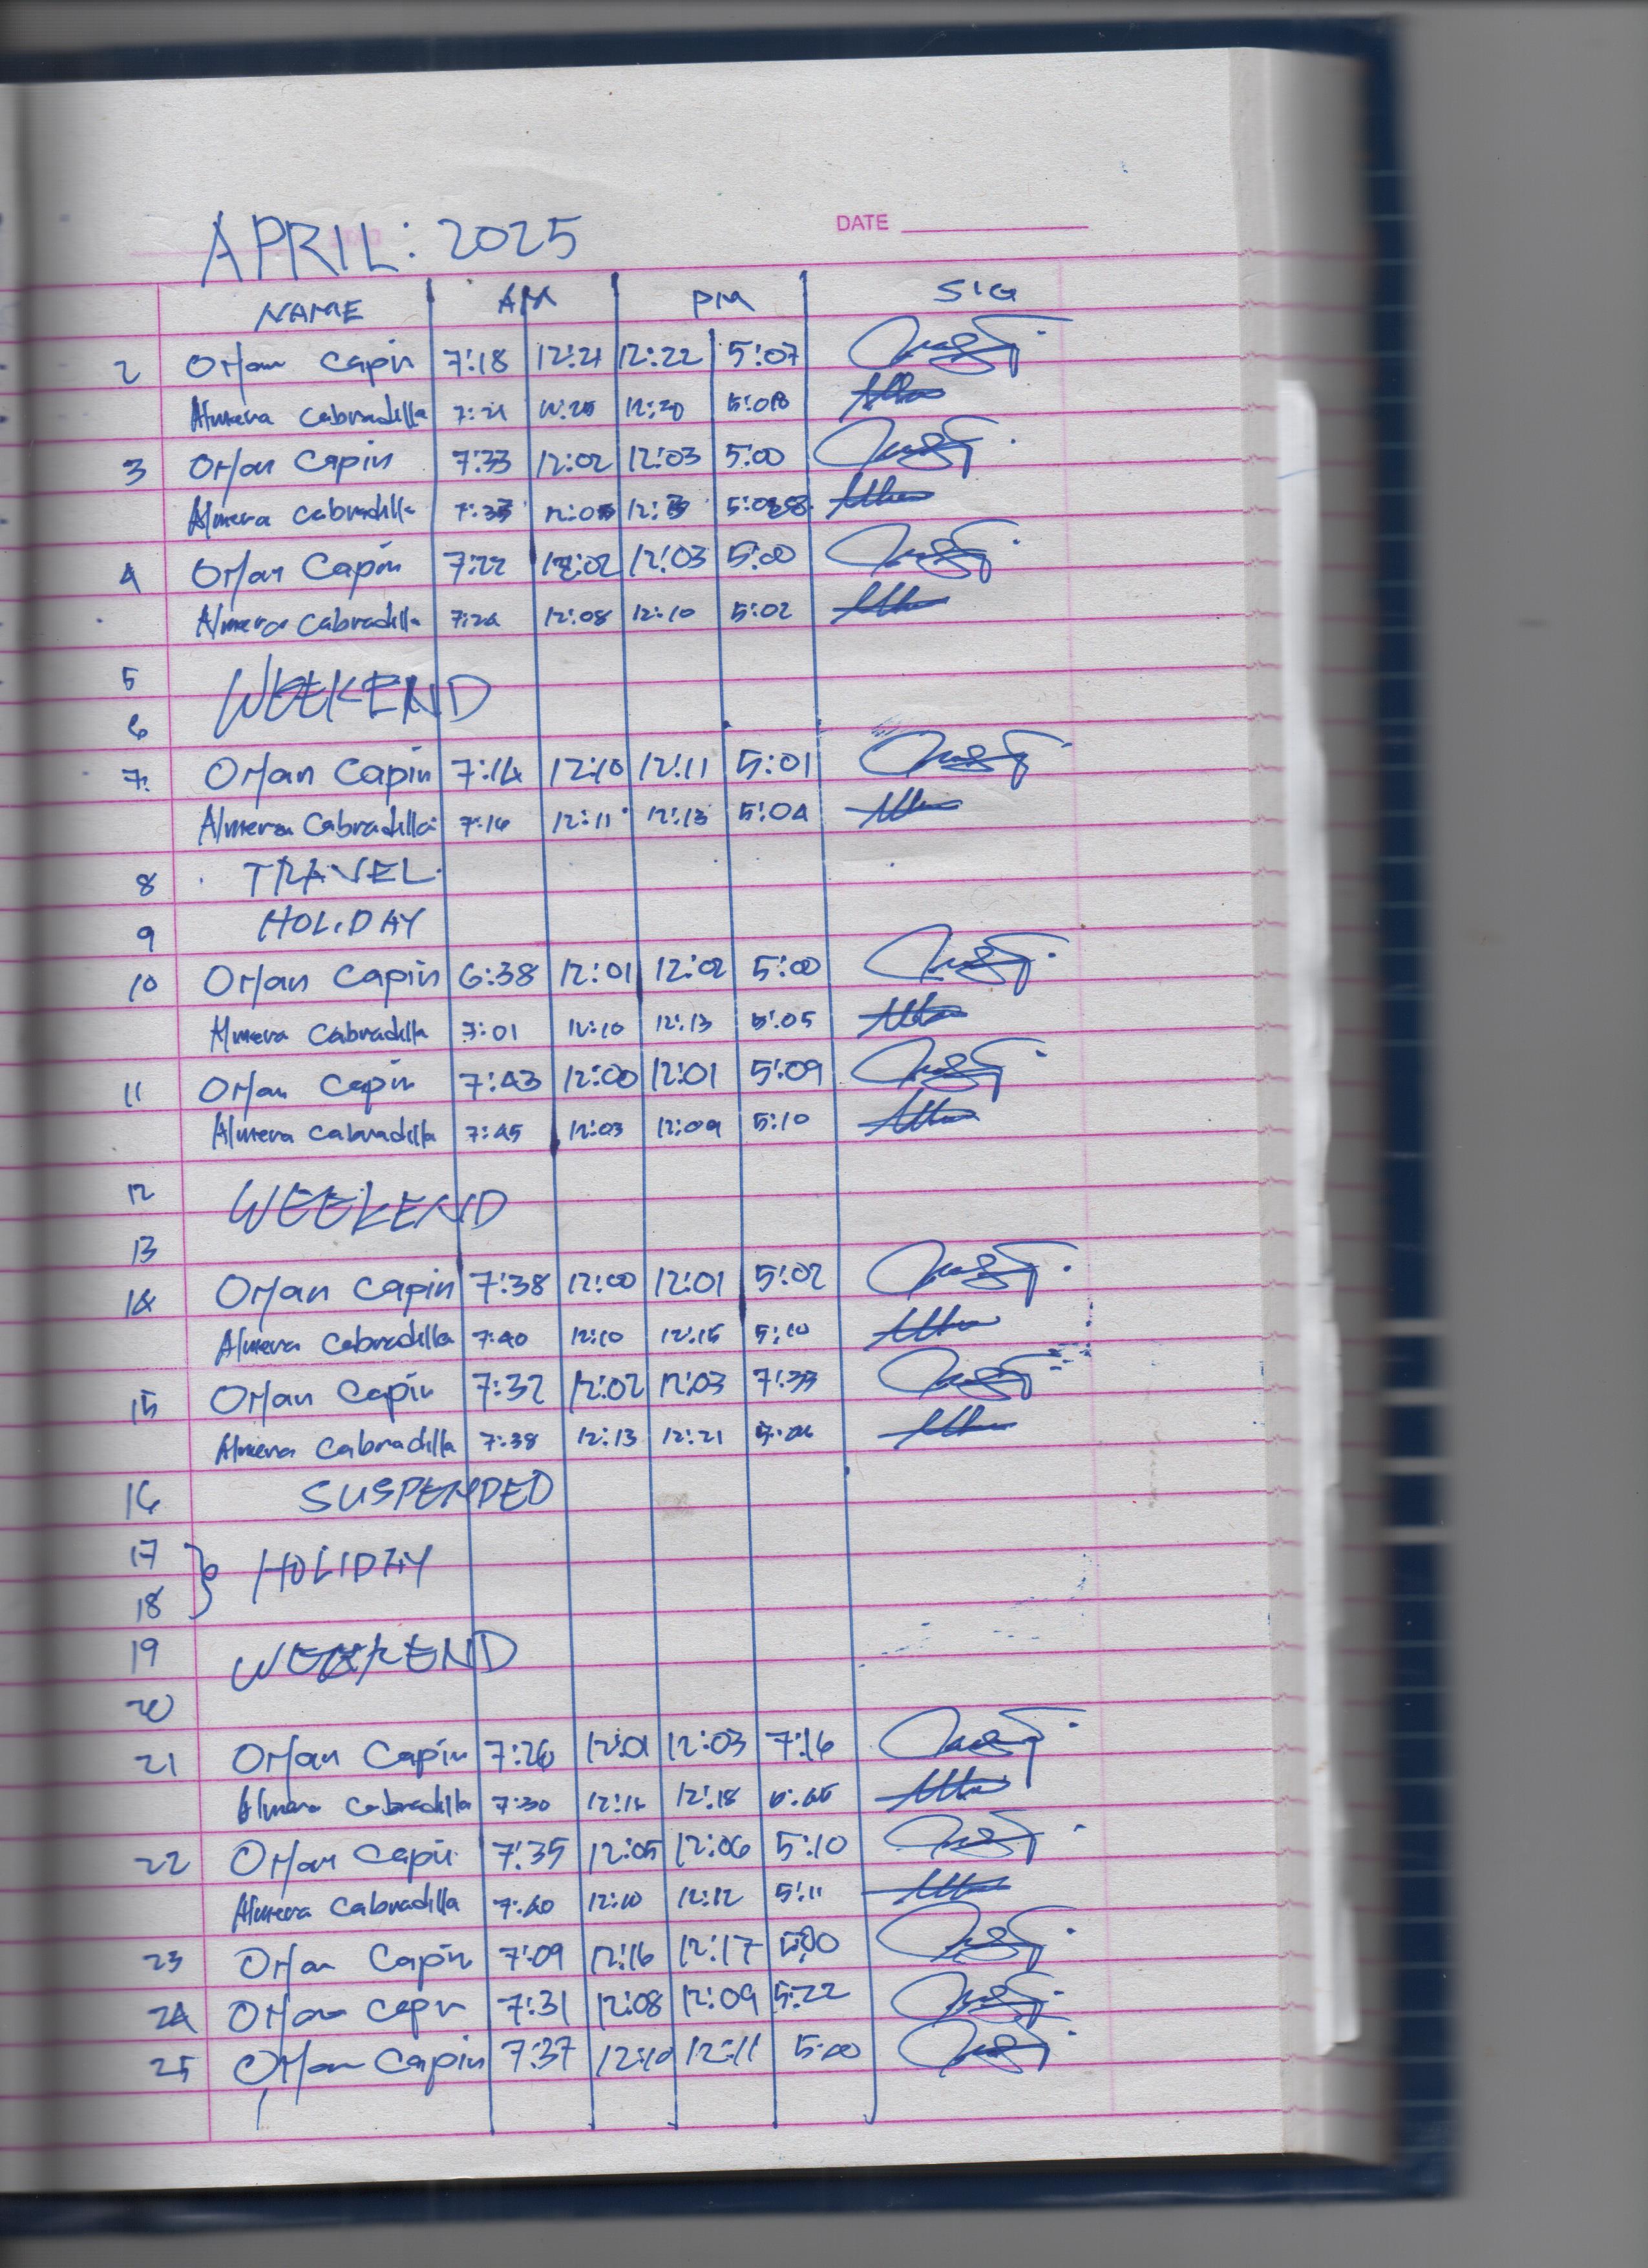 APRIL: 2025
DATE
NAME AM PM SIG
2 Orlan Capin 7:18 12:21 12:22 5:07
Almera Cabradilla 7:21 12:20
3 Orlan Capin 7:33 12:02 12:03 5:00
Almera Cabradilla
4 Orlan Capin 7:22 12:02 12:03 5:00
Almera Cabradilla 7:24 12:08 12:10 5:02
5
WEEKEND
6
7 Orlan Capin 7:14 12:10 12:11 5:01
Almera Cabradilla 7:16 12:11 12:13 5:04
8 TRAVEL
9 HOLIDAY
10 Orlan Capin 6:38 12:01 12:02 5:00
Almera Cabradilla 7:01 12:10 12:13 5:05
11 Orlan Capin 7:43 12:00 12:01 5:09
Almera Cabradilla 7:45 12:03 12:09 5:10
12
WEEKEND
13
14 Orlan Capin 7:38 12:00 12:01 5:02
Almera Cabradilla 7:40 12:10 12:15 5:10
15 Orlan Capin 7:32 12:02 12:03 7:33
Almera Cabradilla 7:38 12:13 12:21
16 SUSPENDED
17
HOLIDAY
18
19 WEEKEND
20
21 Orlan Capin 7:26 12:01 12:03 7:16
Almera Cabradilla 7:30 12:18
22 Orlan Capin 7:35 12:05 12:06 5:10
Almera Cabradilla 7:40 12:10 12:12 5:11
23 Orlan Capin 7:09 12:16 12:17 5:00
24 Orlan Capin 7:31 12:08 12:09 5:22
25 Orlan Capin 7:37 12:10 12:11 5:00